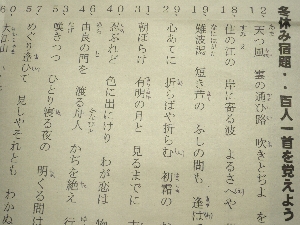 冬休み宿題・・百人一首を覚えよう
12、天つ風 雲の通ひ路 吹きとぢよ を
18 住の江の 岸に寄る波 よるさへや
19 難波潟 短き芦の ふしの間も 逢は
29 心あてに 折らばや折らむ 初霜の
31 朝ぼらけ 有明の月と 見るまでに
40 しのぶれど 色に出にけり わが恋は 物
46 由良の門を 渡る舟人 かぢを絶え 行
53 嘆きつつ ひとり寝る夜の 明くる間は
57 めぐり逢ひて 見しやそれとも わかぬ
60 大江山